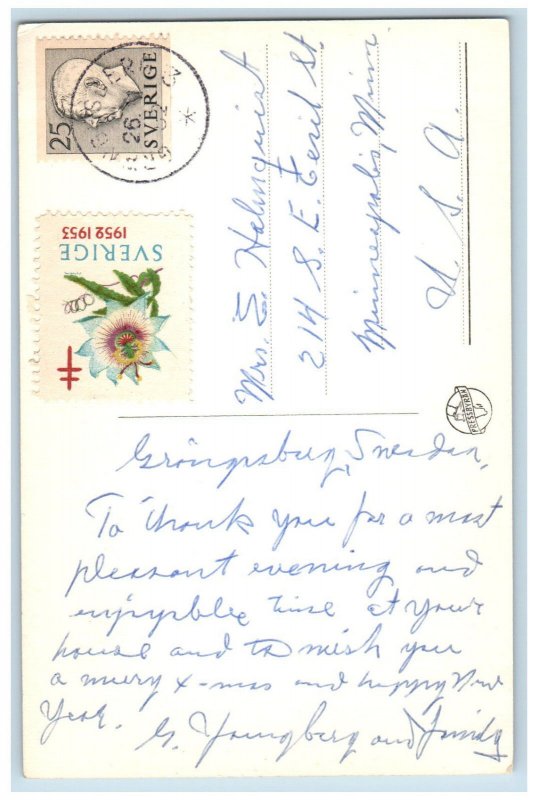 25
SVERIGE
SVERIGE
1952 1953
PRESSBYRÅN
Mrs. E Halmquist
214 S. E. Cecil St.
Minneapolis, Minn
U. S. A.
Sweden,
To thank you for a most
pleasant evening and
enjoyable time at your
house and to wish you
a merry x-mas and happy New
Year.
G. Youngberg and Family